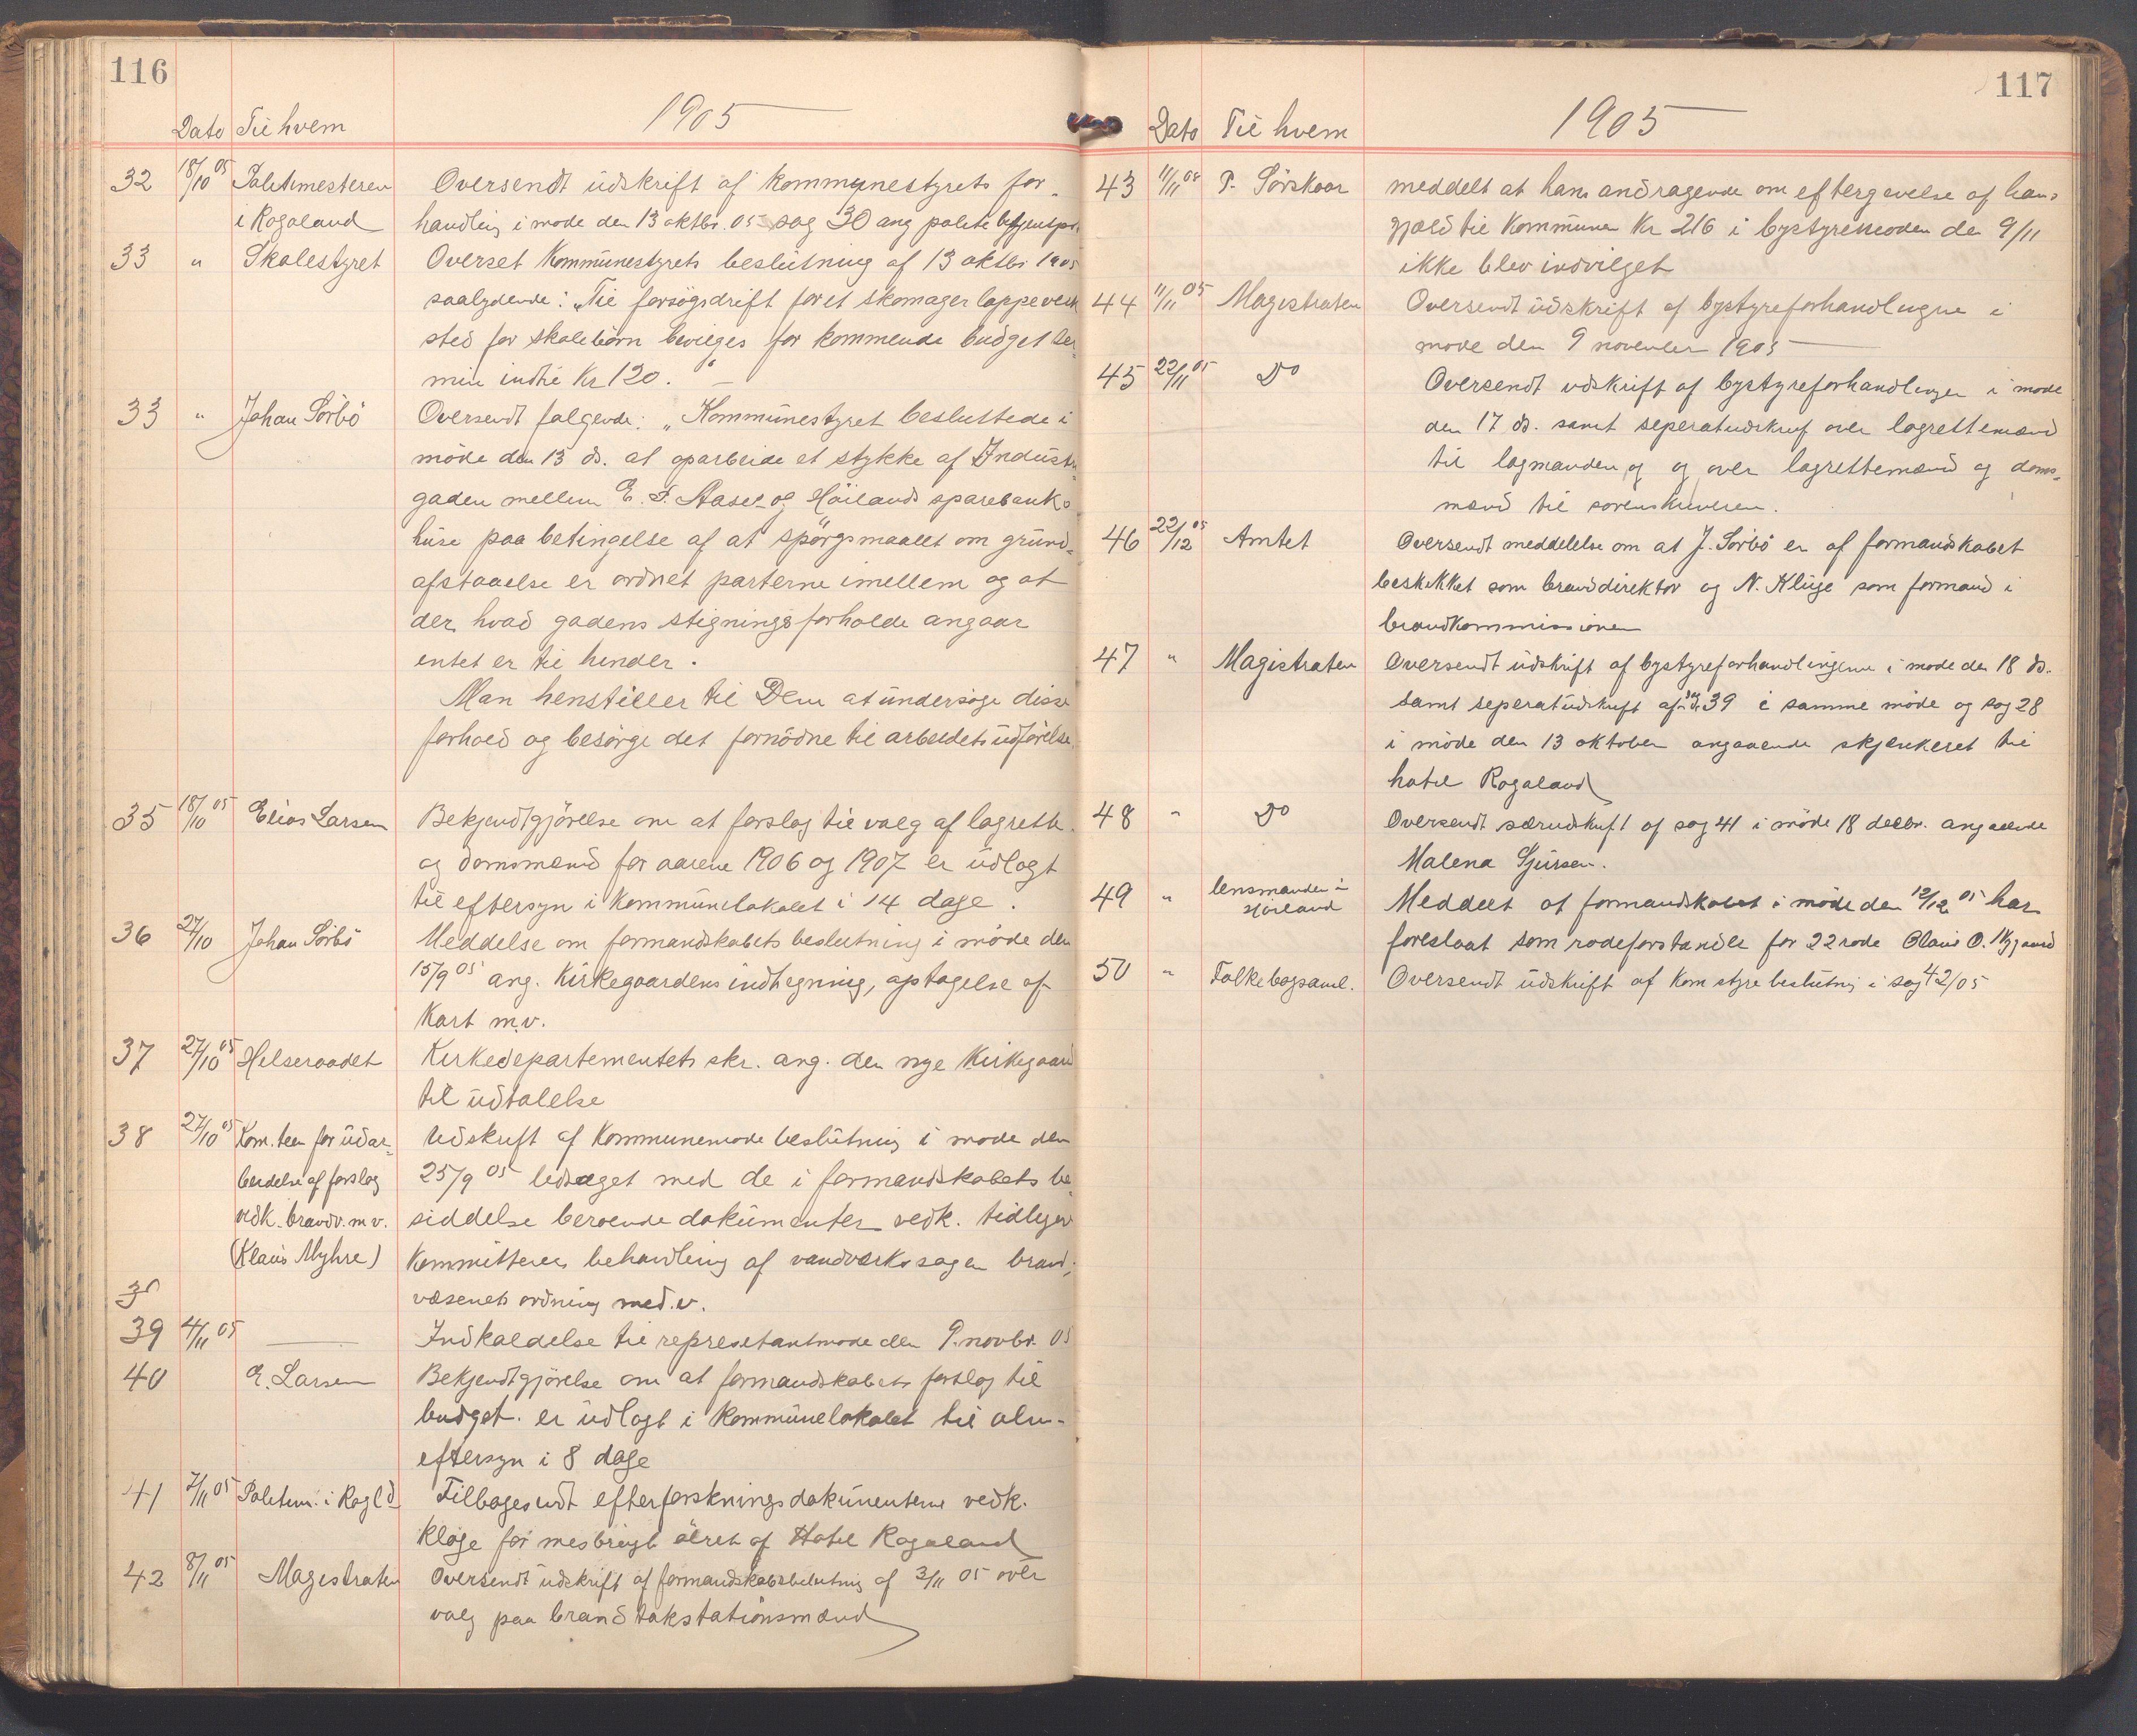 116
Dato Til hvem 1905
32 18/10 05 Politimesteren Oversendt udskrift af kommunestyrets for-
i Rogaland handling i møde den 13 oktbr. 05 sag 30 ang politi
33 " Skolestyret Overset Kommunestyrets beslutning af 13 oktbr 1905
saalydende: „Til forsøgsdrift for et skomager lappeverk
sted for skolebørn bevilges for kommende budget ter-
min indtil Kr 120."
33 " Johan Sörbö Oversendt følgende: „Kommunestyret besluttede i
møde den 13 ds. at oparbeide et stykke af Industri
gaden mellem E. F. Aases og Höilands sparebanks
huse paa betingelse af at spørgsmaalet om grund-
afstaaelse er ordnet parterne imellem og at
der hvad gadens stigningsforholde angaar
intet er til hinder.
Man henstiller til Dem at undersøge disse
forhold og besørge det fornödne til arbeidets udförelse.
35 18/10 05 Elias Larsen Bekjendtgjörelse om at forslag til valg af lagrette-
og domsmænd for aarene 1906 og 1907 er udlagt
til eftersyn i Kommunelokalet i 14 dage.
36 27/10 Johan Sörbö Meddelse om formandskabets beslutning i møde den
15/9 05 ang. Kirkegaardens indhegning, optagelse af
Kart m.v.
37 27/10 05 Helseraadet Kirkedepartementets skr. ang. den nye Kirkegaard
til udtalelse
38 27/10 05 Kom.teen for udar- Udskrift af Kommunemøde beslutning i møde den
beidelse af forslag 25/9 05 ledsaget med de i formandskabets be-
vedk. brandv. m v. siddelse beroende dokumenter vedk. tidligere
(Klaus Myhre) Kommitteers behandling af vandværkssagen brand-
væsenets ordning med.v.
39 4/11 05 — Indkaldelse til represetantmøde den 9. novbr. 05
40 E. Larsen Bekjendtgjörelse om at formandskabets forslag til
budget. er udlagt i Kommunelokalet til alm-
eftersyn i 8 dage
41 7/11 05 Politim. i Rogld Tilbagesendt efterforskningsdokumenterne vedk.
Klage for misbrugt ölret af Hotel Rogaland
42 8/11 05 Magistraten Oversendt udskrift af formandskabsbelutning af 3/11 05 over
valg paa brandtakstationsmænd
117
Dato Til hvem 1905
43 11/11 08 P. Sörskaar meddelt at hans andragende om eftergivelse af hans
gjæld til Kommunen Kr 216 i bystyremøden den 9/11
ikke blev indvilget
44 11/11 05 Magistraten Oversendt udskrift af bystyreforhandlingne i
møde den 9 november 1905
45 22/11 05 Do Oversendt udskrift af bystyreforhandlingen i møde
den 17 ds. samt seperatudskrift over lagrettemænd
til lagmanden og og over lagrettemænd og doms-
mænd til sorenskriveren.
46 22/12 05 Amtet Oversendt meddelelse om at J. Sörbö er af formandskabet
beskikket som branddirektør og N. Kluge som formand i
brandkommissionen
47 " Magistraten Oversendt udskrift af bystyreforhandlingerne i møde den 18 ds.
samt seperatudskrift af sag 39 i samme møde og sag 28
i møde den 13 oktober angaaende skjænkeret til
hotel Rogaland
48 " Do Oversendt særudskrift af sag 41 i møde 18 decbr. angaaende
Malena Sjursen.
49 " lensmanden i Meddelt at formandskabet i møde den 12/12 05 har
Höiland foreslaat som rodeforstander for 22 rode Olaus O.
50 " Folkebogsaml. Oversendt udskrift af Kom styre beslutning i sag 42/05